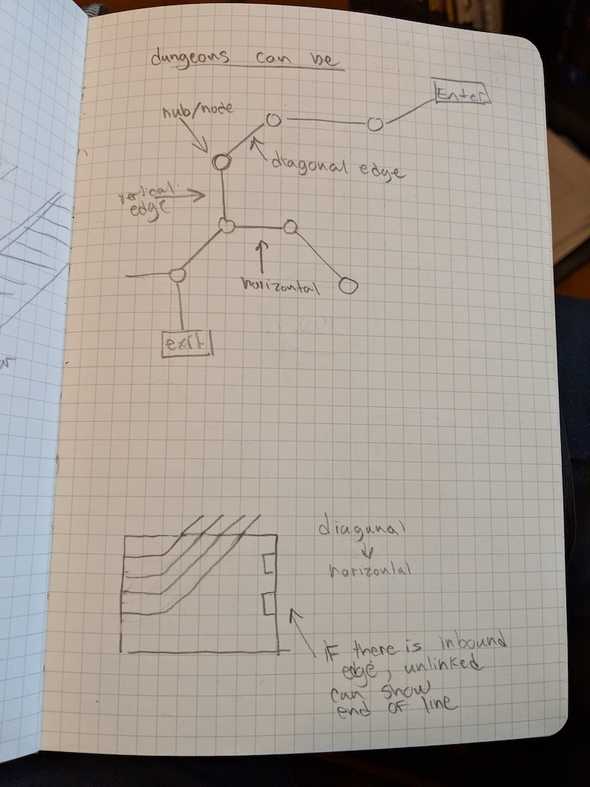 dungeons can be
Enter
hub/node
diagonal edge
vertical
edge
horizontal
exit
diagunal
horizontal
if there is inbound
edge, unlinked
can show
end of line